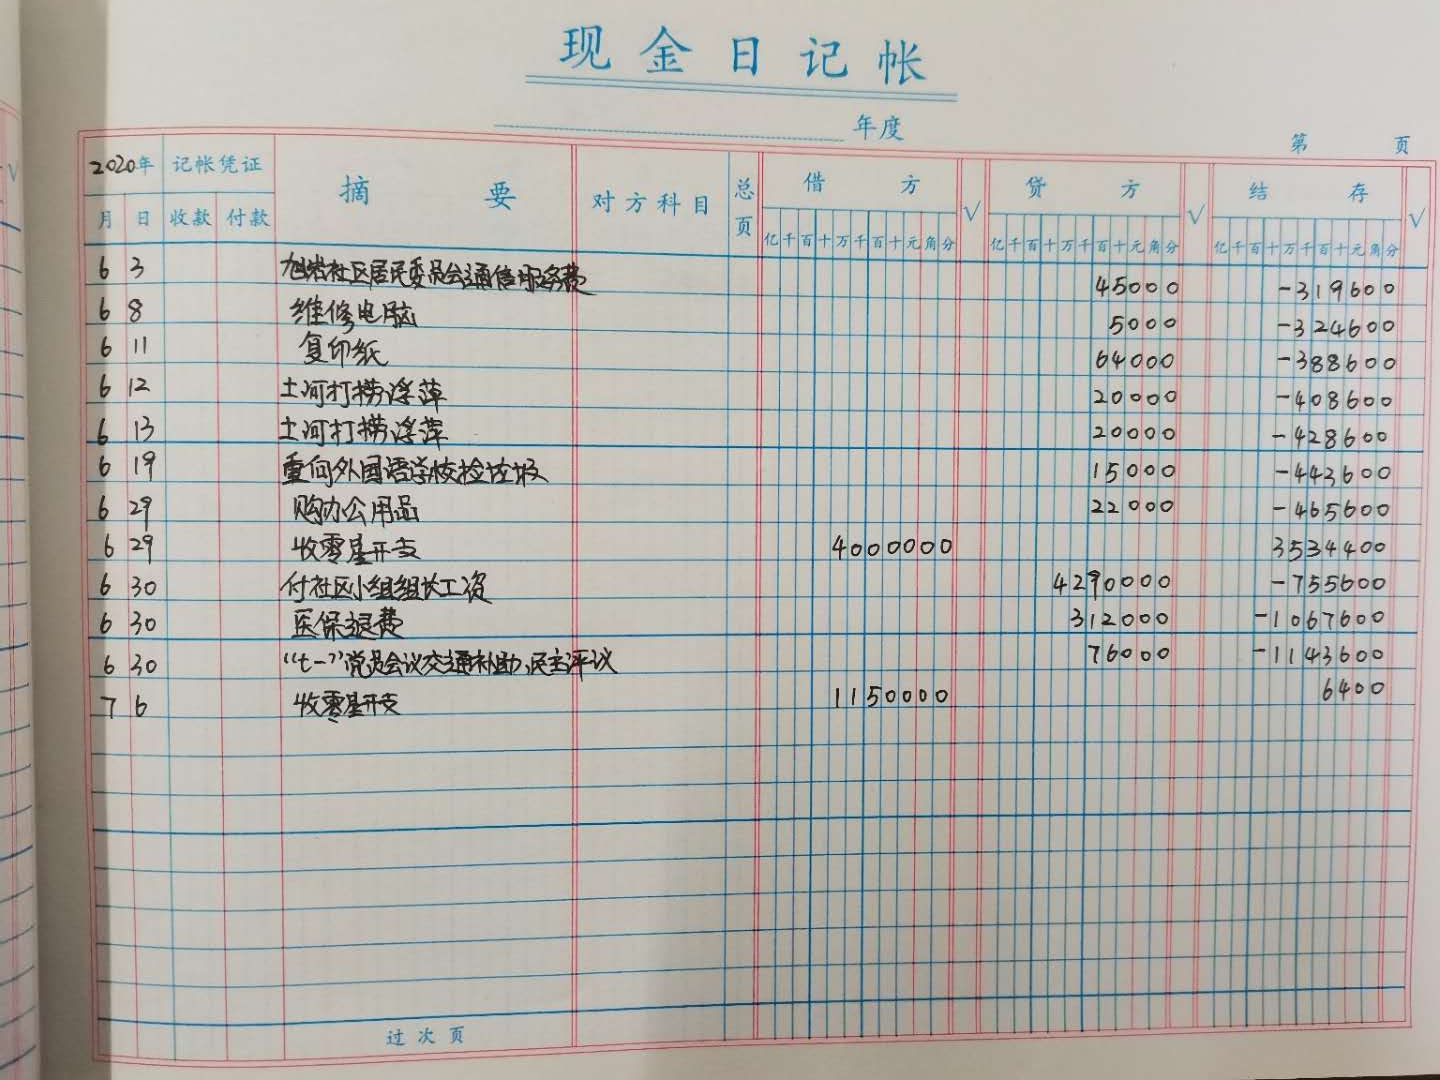 现金日记帐
年度
第 页
2020年 记帐凭证 摘要 对方科目 总页 借方 √ 贷方 √ 结存 √
月 日 收款 付款 亿千百十万千百十元角分 亿千百十万千百十元角分 亿千百十万千百十元角分
6 3 旭岩社区居民委员会通信服务费 45000 -319600
6 8 维修电脑 5000 -324600
6 11 复印纸 64000 -388600
6 12 土河打捞浮萍 20000 -408600
6 13 土河打捞浮萍 20000 -428600
6 19 重向外国语学校捡垃圾 15000 -443600
6 29 购办公用品 22000 -465600
6 29 收零星开支 4000000 3534400
6 30 付社区小组组长工资 4290000 -755600
6 30 医保退费 312000 -1067600
6 30 “七一”党员会议交通补助、民主评议 76000 -1143600
7 6 收零星开支 1150000 6400
过次页